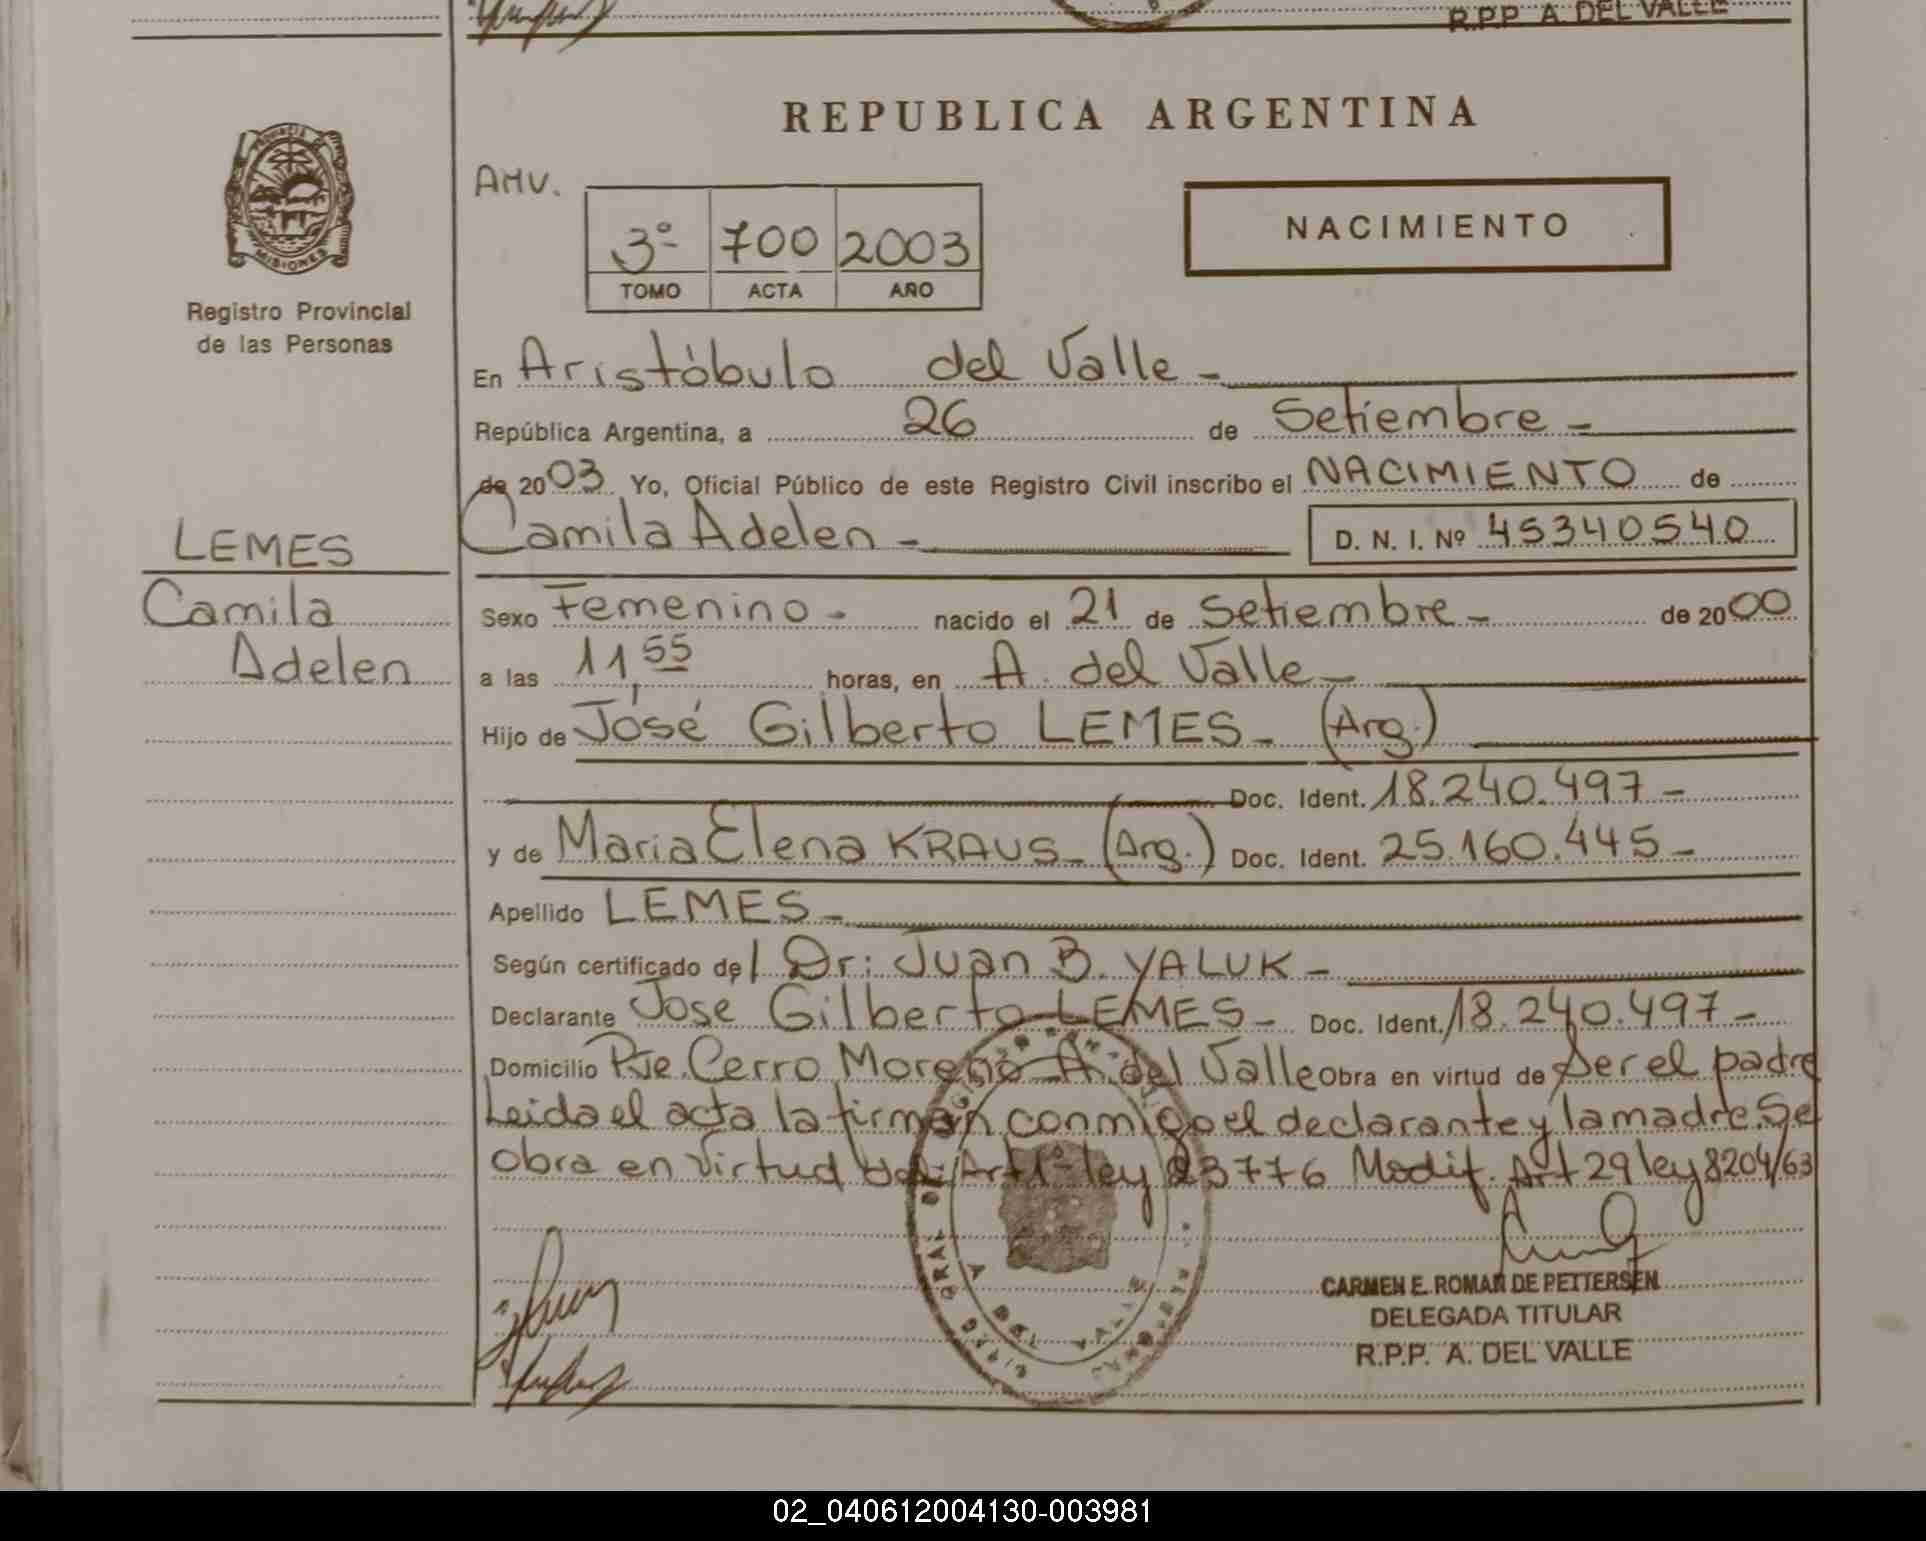 R.P.P. A. DEL VALLE
REPUBLICA ARGENTINA
PROVINCIA
MISIONES
Registro Provincial
de las Personas
AMV.
3º 700 2003
TOMO ACTA AÑO
NACIMIENTO
En Aristóbulo del Valle -
República Argentina, a 26 de Setiembre -
de 2003 Yo, Oficial Público de este Registro Civil inscribo el NACIMIENTO de
Camila Adelen - D. N. I. Nº 45340540
LEMES
Camila
Adelen
Sexo Femenino - nacido el 21 de Setiembre - de 2000
a las 11,55 horas, en A. del Valle -
Hijo de José Gilberto LEMES - (Arg.)
Doc. Ident. 18.240.497 -
y de Maria Elena KRAUS - (Arg.) Doc. Ident. 25.160.445 -
Apellido LEMES -
Según certificado de l Dr: Juan B. YALUK -
Declarante Jose Gilberto LEMES - Doc. Ident. 18.240.497 -
Domicilio Pje. Cerro Moreno A. del Valle Obra en virtud de Ser el padre
Leida el acta la firman conmigo el declarante y la madre. Se
obra en virtud del Art 1º ley 23776 Modif. Art 29 ley 8204/63
A DEL VALLE
CARMEN E. ROMAN DE PETTERSEN
DELEGADA TITULAR
R.P.P. A. DEL VALLE
02_040612004130-003981